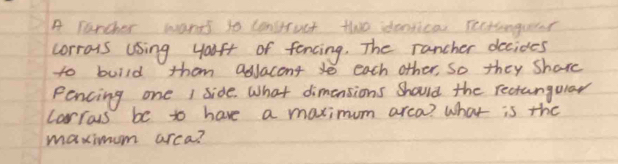 A rancher wants to construct two identical rectangular
corrals using 400ft of fencing. The rancher decides
to build them adjacent to each other, so they share
Fencing one 1 side. What dimensions should the rectangular
corrals be to have a maximum area? What is the
maximum area?